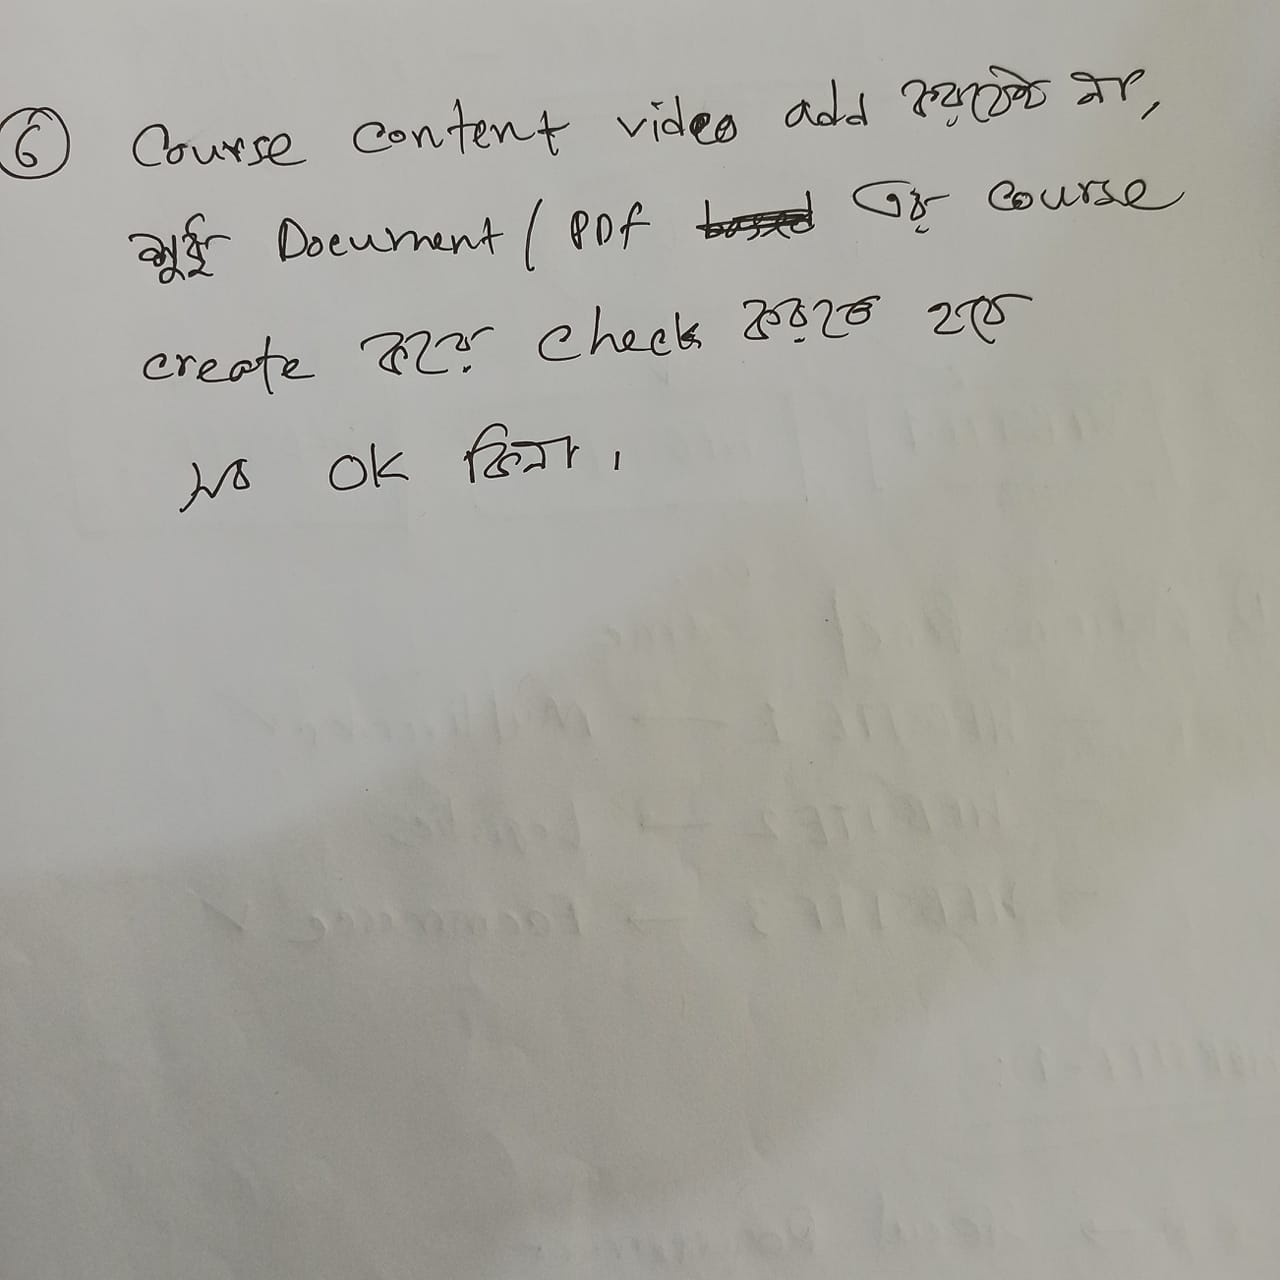 ⑥ Course content video add করবেই না,
শুধু Document / PDF based এর course
create করে check করতে হবে
সব OK কিনা।